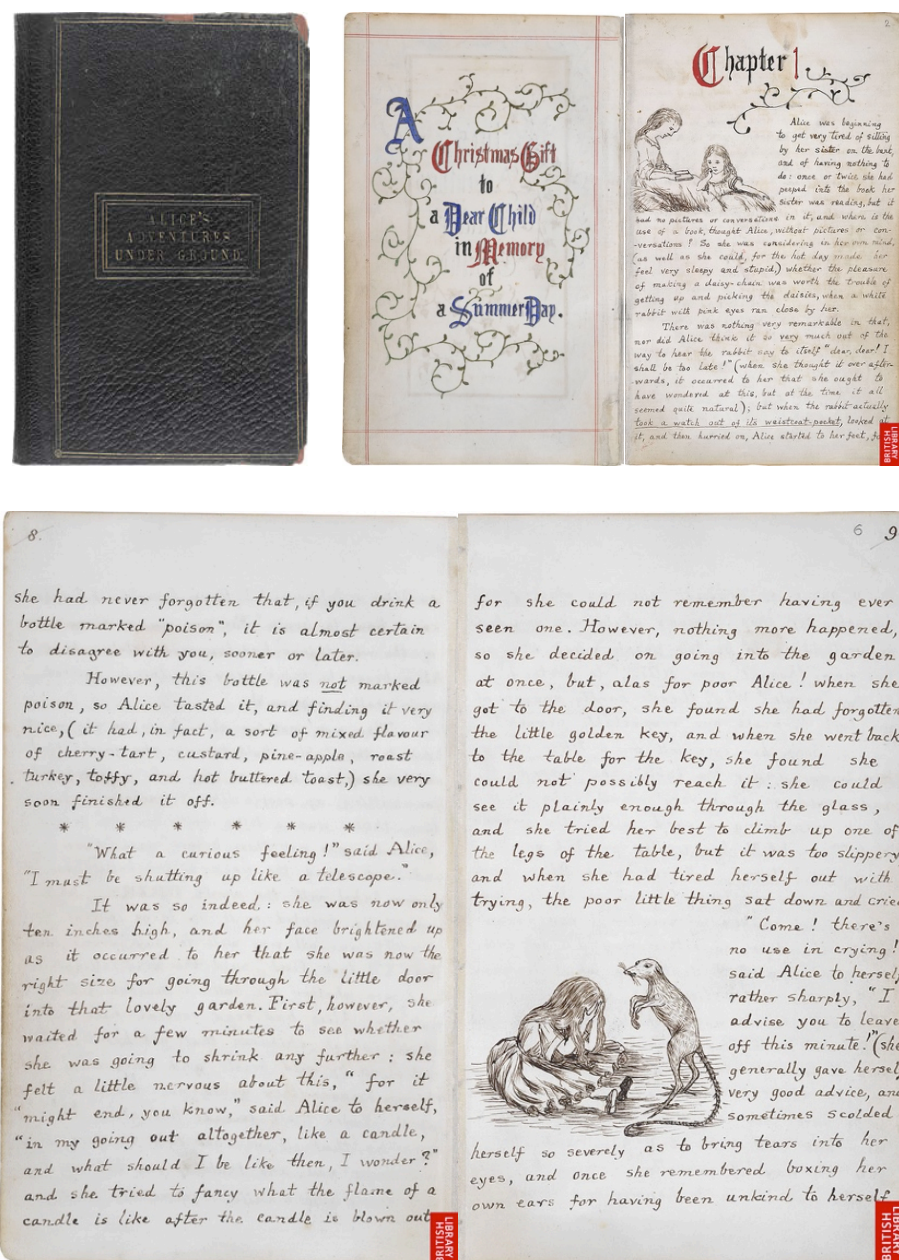 ALICE'S
ADVENTURES
UNDER GROUND
A
Christmas Gift
to
a Dear Child
in Memory
of
a Summer Day.
2
Chapter 1
Alice was beginning
to get very tired of sitting
by her sister on the bank,
and of having nothing to
do: once or twice she had
peeped into the book her
sister was reading, but it
had no pictures or conversations in it, and where is the
use of a book, thought Alice, without pictures or con-
-versations? So she was considering in her own mind,
(as well as she could, for the hot day made her
feel very sleepy and stupid,) whether the pleasure
of making a daisy-chain was worth the trouble of
getting up and picking the daisies, when a white
rabbit with pink eyes ran close by her.
There was nothing very remarkable in that,
nor did Alice think it so very much out of the
way to hear the rabbit say to itself "dear, dear! I
shall be too late!" (when she thought it over after-
-wards, it occurred to her that she ought to
have wondered at this, but at the time it all
seemed quite natural); but when the rabbit actually
took a watch out of its waistcoat-pocket, looked at
it, and then hurried on, Alice started to her feet,
BRITISH
LIBRARY
8.
she had never forgotten that, if you drink a
bottle marked "poison", it is almost certain
to disagree with you, sooner or later.
However, this bottle was not marked
poison, so Alice tasted it, and finding it very
nice, (it had, in fact, a sort of mixed flavour
of cherry-tart, custard, pine-apple, roast
turkey, toffy, and hot buttered toast,) she very
soon finished it off.
* * * * * *
"What a curious feeling!" said Alice,
"I must be shutting up like a telescope."
It was so indeed: she was now only
ten inches high, and her face brightened up
as it occurred to her that she was now the
right size for going through the little door
into that lovely garden. First, however, she
waited for a few minutes to see whether
she was going to shrink any further: she
felt a little nervous about this, "for it
"might end, you know," said Alice to herself,
"in my going out altogether, like a candle,
and what should I be like then, I wonder?"
and she tried to fancy what the flame of a
candle is like after the candle is blown out
BRITISH
LIBRARY
6 9
for she could not remember having ever
seen one. However, nothing more happened,
so she decided on going into the garden
at once, but, alas for poor Alice! when she
got to the door, she found she had forgotten
the little golden key, and when she went back
to the table for the key, she found she
could not possibly reach it: she could
see it plainly enough through the glass,
and she tried her best to climb up one of
the legs of the table, but it was too slippery
and when she had tired herself out with
trying, the poor little thing sat down and cried
"Come! there's
no use in crying!
said Alice to herself
rather sharply, "I
advise you to leave
off this minute!" (she
generally gave herself
very good advice, and
sometimes scolded
herself so severely as to bring tears into her
eyes, and once she remembered boxing her
own ears for having been unkind to herself
BRITISH
LIBRARY